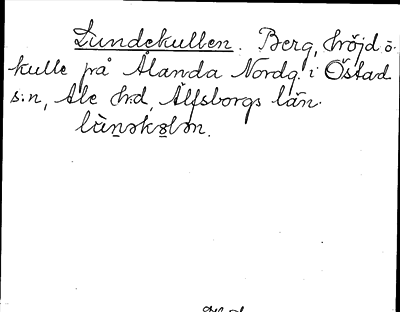 Lundekullen. Berg, höjd o.
kulle på Ålanda Nordg. i Östad
s:n, Ale hrd, Älfsborgs län.